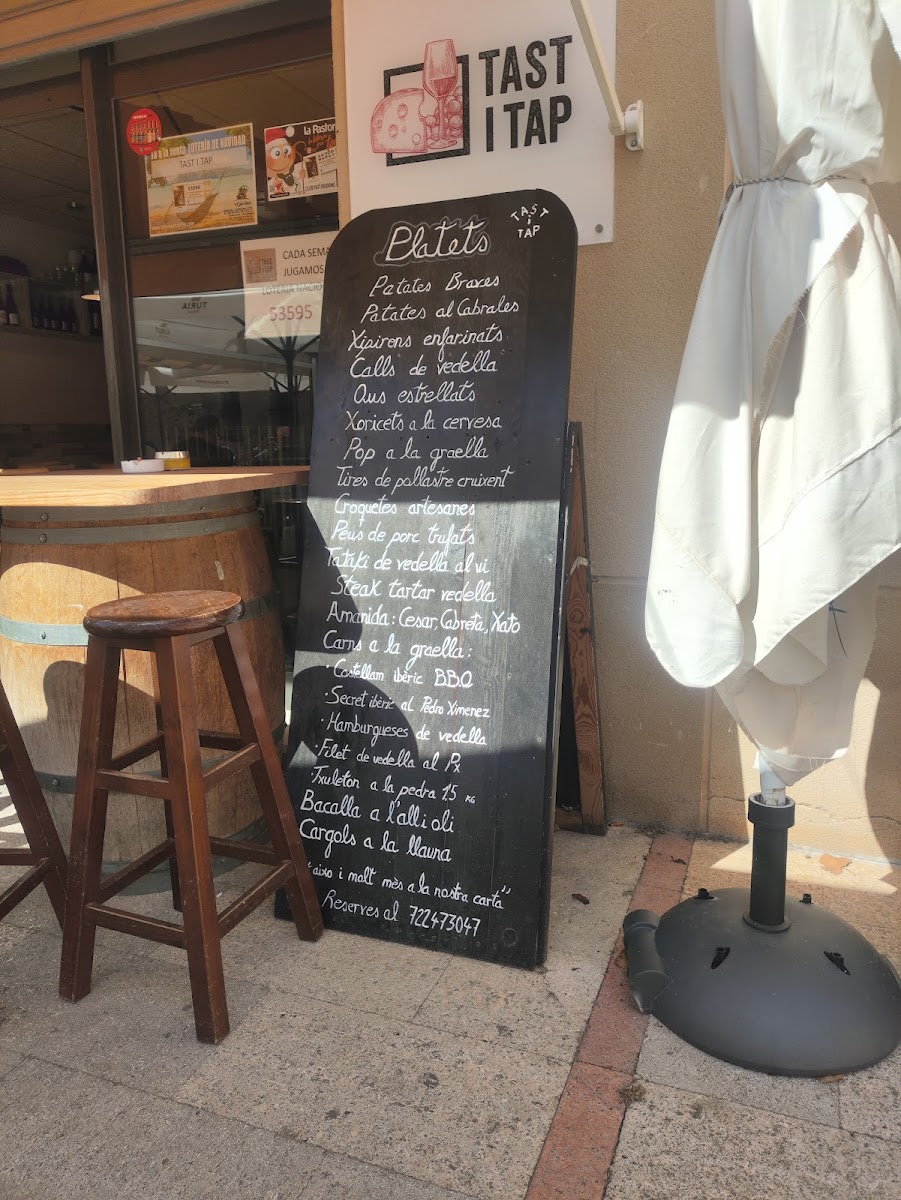 TAST
I TAP
LOTERÍA DE NAVIDAD
TAST I TAP
la Pastor
CADA SEMA
JUGAMOS
LOTERIA NACIO
53595
Platets
TAST
i
TAP
Patates Braves
Patates al Cabrales
Xipirons enfarinats
Calls de vedella
Ous estrellats
Xoricets a la cervesa
Pop a la graella
Tires de pollastre cruixent
Croquetes artesanes
Peus de porc trufats
Tataki de vedella al vi
Steak tartar vedella
Amanida: Cesar, Cabreta, Xato
Carns a la graella:
· Costellam ibèric B.B.Q
· Secret ibèric al Pedro Ximenez
· Hamburgueses de vedella
· Filet de vedella al Px
· Txuleton a la pedra 1.5 KG
Bacalla a l'alli oli
Cargols a la llauna
"aixo i molt mès a la nostra carta"
Reserves al 722473047